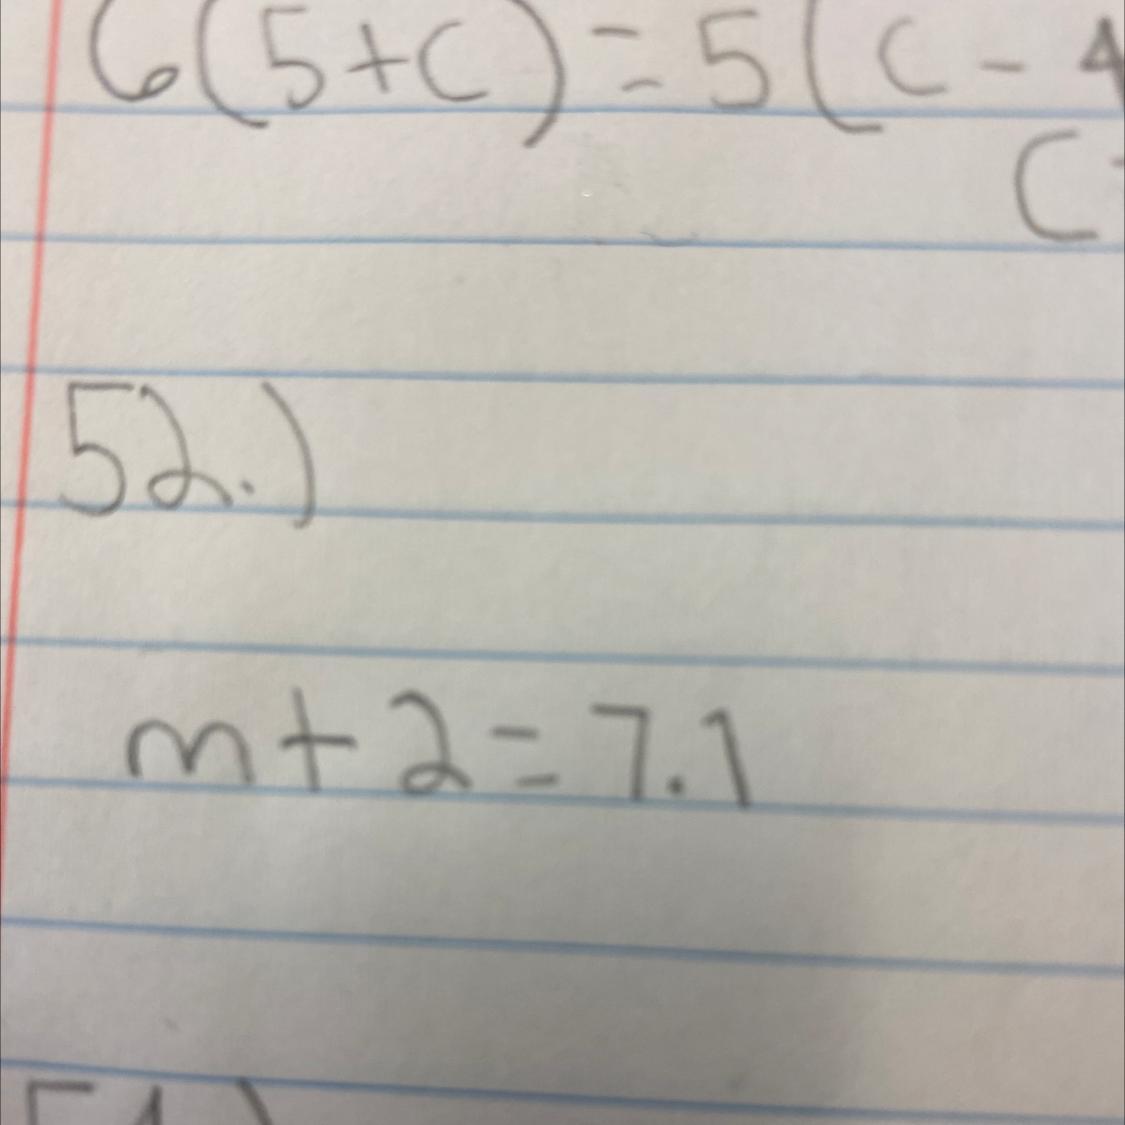 6(5+c)=5(c-4
c
52.)
m+2=7.1